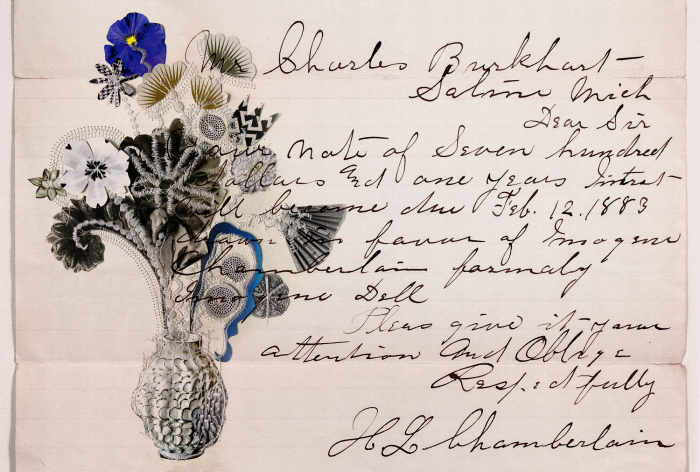 Mr Charles Burkhart
Saline Mich
Dear Sir
Your Note of Seven hundred
Dollars and one years Intrest
will become due Feb. 12. 1883
drawn in favor of Imogene
Chamberlain formaly
Imogene Dell
Pleas give it your
attention And Oblige
Respectfully
H L Chamberlain